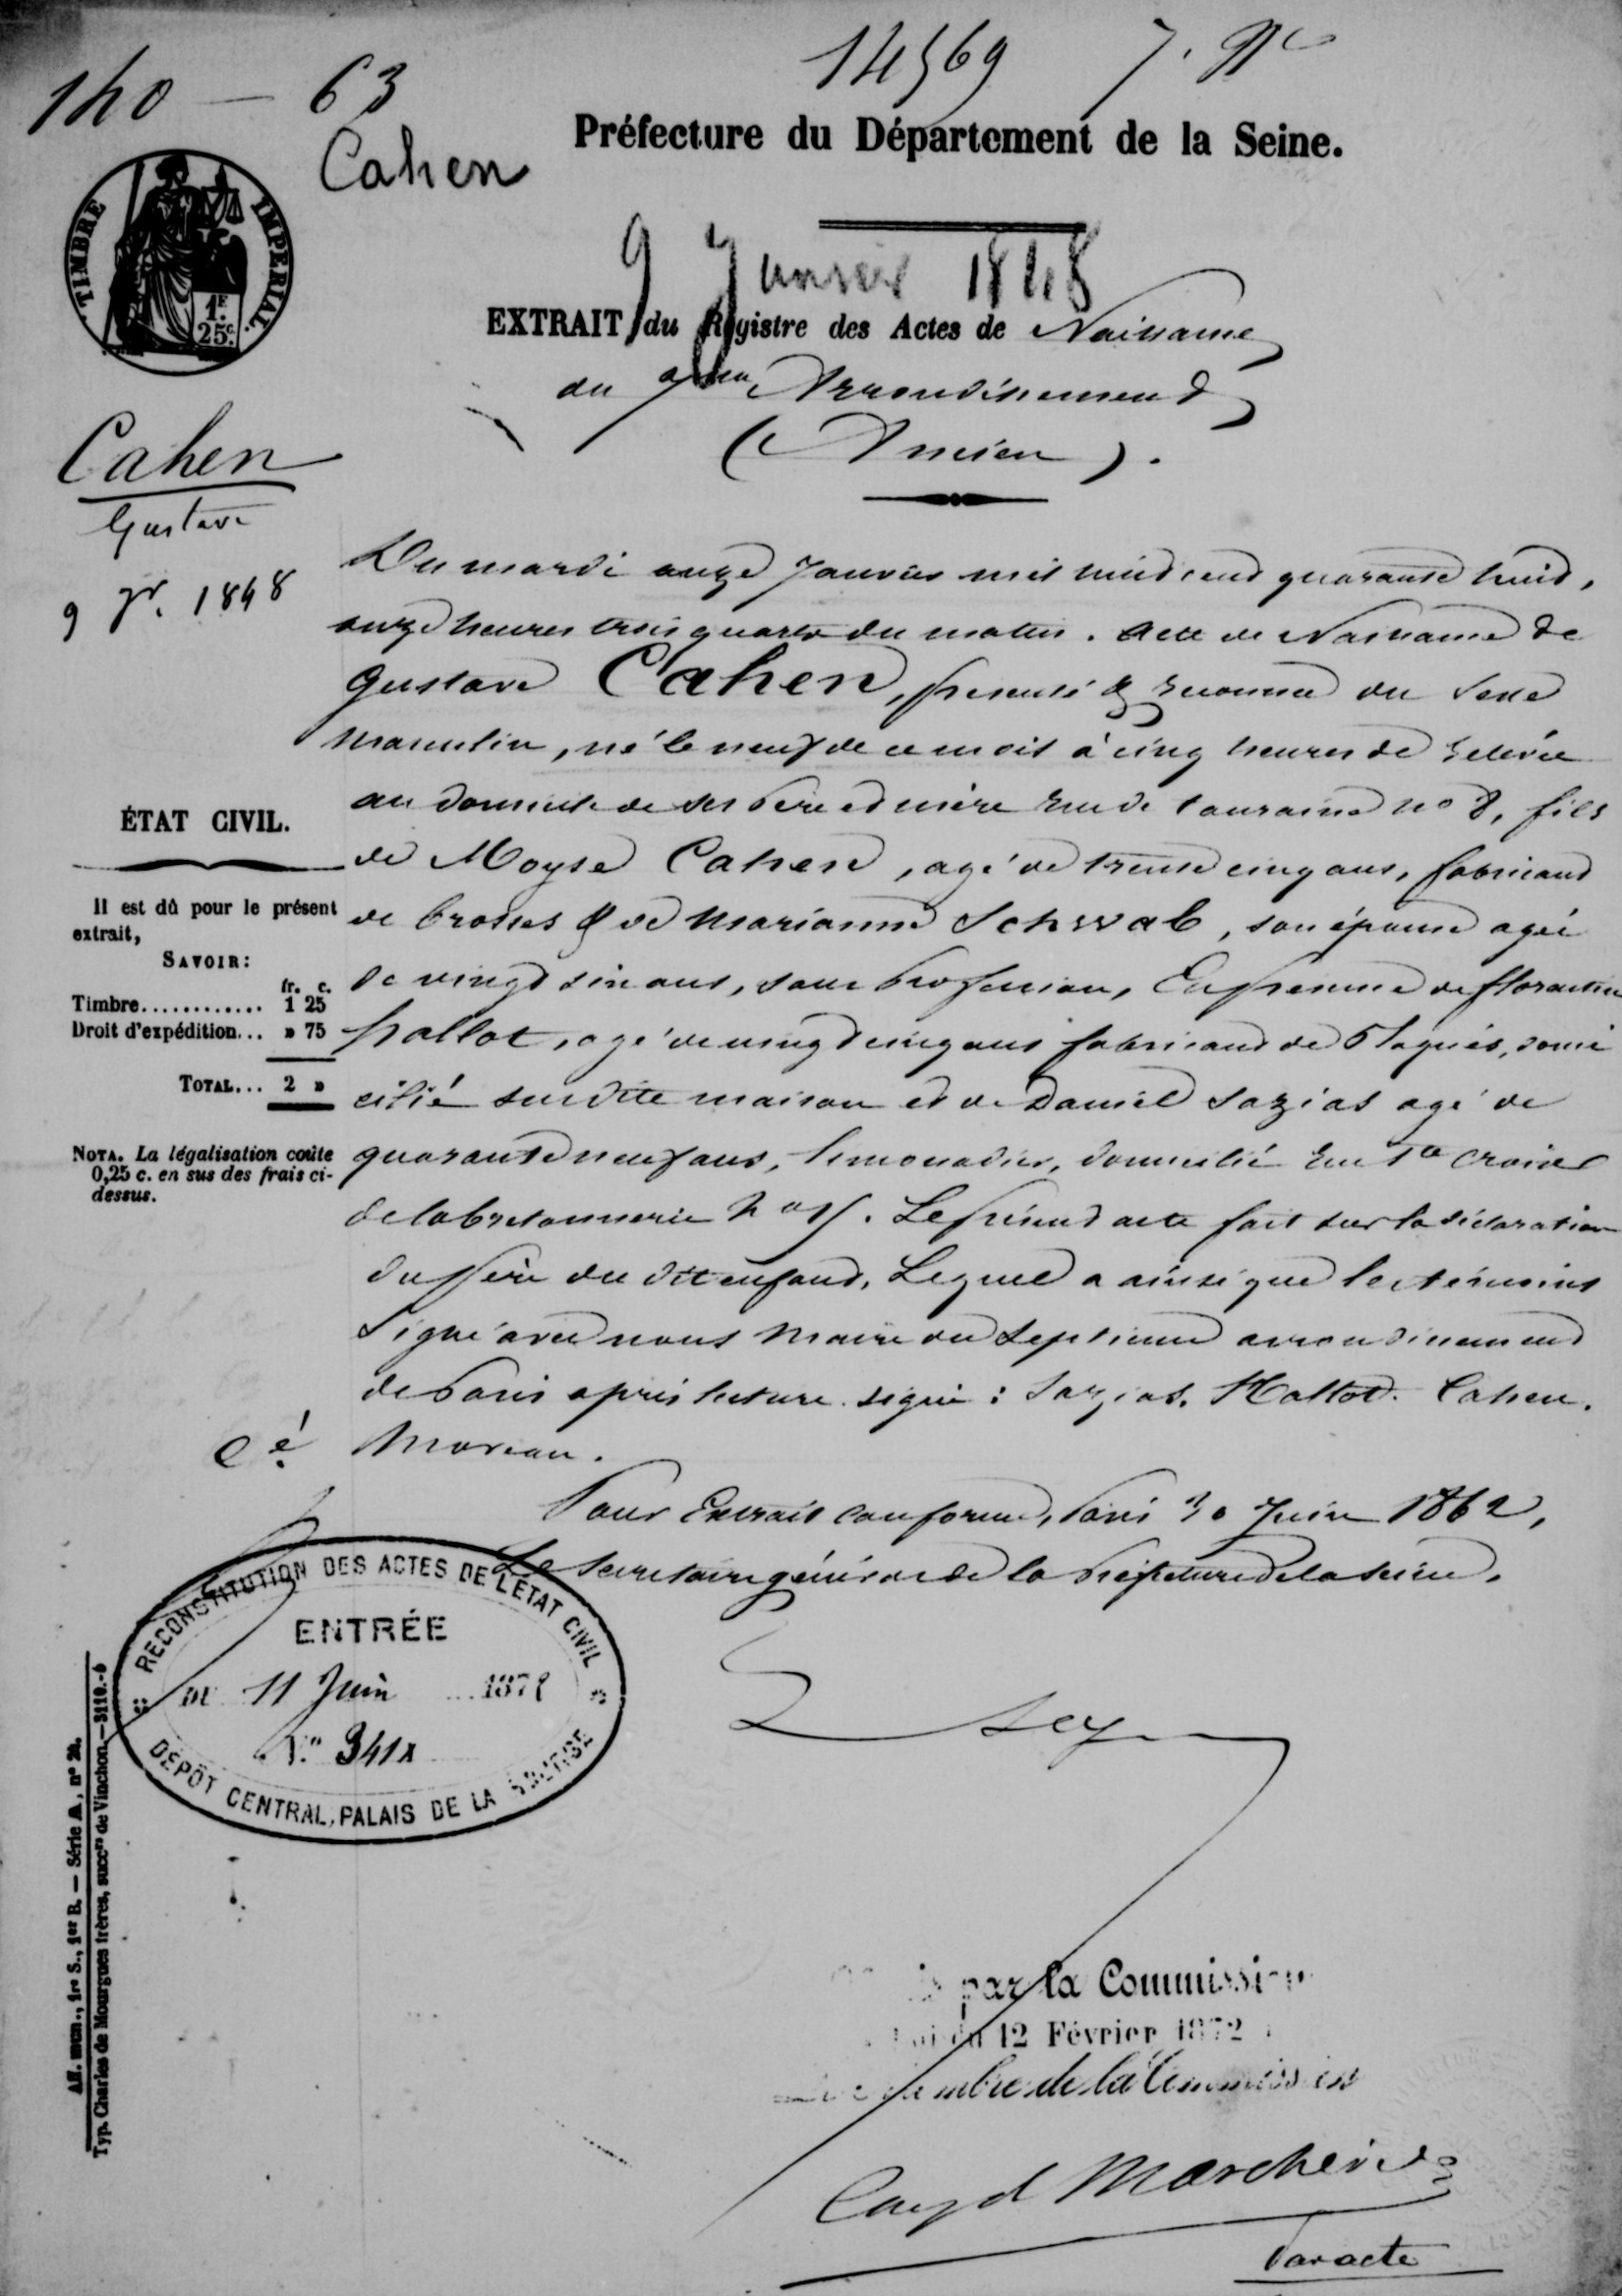 140 — 63
14569
Cahen
Préfecture du Département de la Seine.
TIMBRE IMPÉRIAL.
1F. 25c.
9 Janvier 1848
EXTRAIT du Registre des Actes de Naissance
du 7me Arrondissement
(Ancien).
Cahen
Gustave
9 Jr. 1848
Du mardi onze Janvier mil huit cent quarante huit,
onze heures trois quarts du matin. Acte de Naissance de
Gustave Cahen, présenté & reconnu du sexe
masculin, né le neuf de ce mois à cinq heures de relevée
au domicile de ses père et mère rue de touraine no 8, fils
de Moyse Cahen, agé de trente cinq ans, fabricant
de brosses & de Marianne Schwab, son épouse agée
de vingt six ans, sans profession, En présence de
hallot, agé de vingt cinq ans fabricant de domi
cilié susdite maison et de Daniel Sazias agé de
quarante neuf ans, limonadier, domicilié rue Ste Croix
de la bretonnerie Le présent acte fait sur la déclaration
du père du dit enfant, Lequel a ainsi que les témoins
signé avec nous Maire du Septieme arrondissement
de Paris après lecture signé: Sazias. Hallot. Cahen.
Moreau.
Cé
Pour Extrait conforme, Paris 30 Juin 1862,
Le Secrétaire général de la Préfecture de la Seine.
ÉTAT CIVIL.
Il est dû pour le présent
extrait,
SAVOIR:
fr. c.
Timbre............ 1 25
Droit d'expédition... » 75
TOTAL... 2 »
NOTA. La légalisation coûte
0,25 c. en sus des frais ci-
dessus.
RECONSTITUTION DES ACTES DE L'ÉTAT CIVIL
ENTRÉE
DU 11 Juin 187
N°
DÉPÔT CENTRAL, PALAIS DE LA BOURSE
Say
par la Commission
Loi du 12 Février 1872
Le membre de la Commission
Marcheix
Par acte
Aff. mun., 1re S., 1er B. — Série A, n° 20.
Typ. Charles de Mourgues frères, succrs de Vinchon.—3110.-6